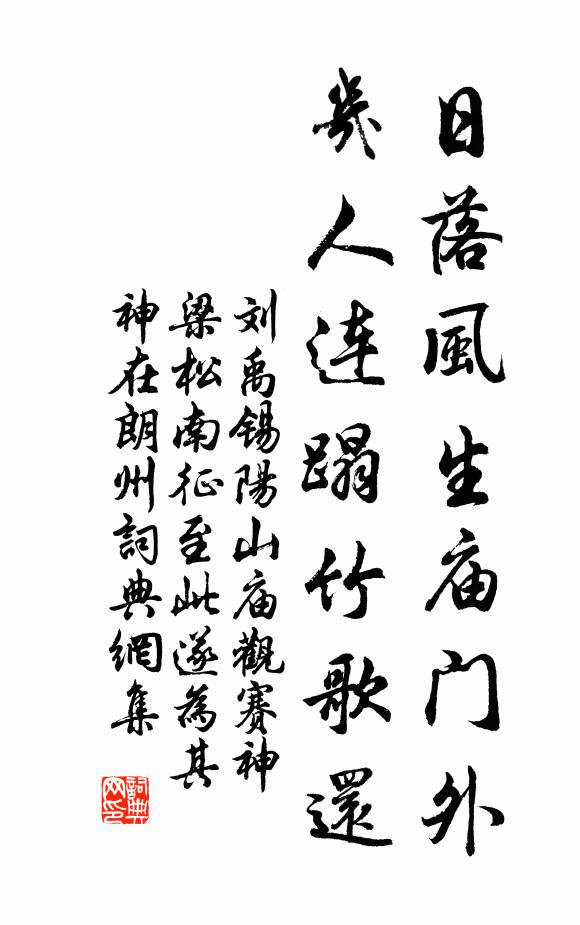 日落風生庙门外
幾人連蹋竹歌還
刘禹锡陽山庙觀賽神
梁松南征至此遂為其
神在朗州詞典網集
詞典网印